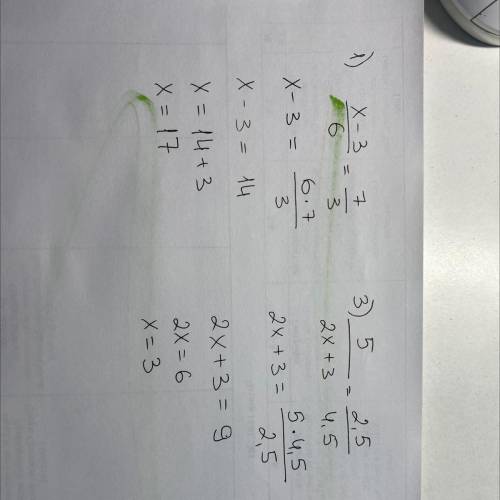 1) x-3/6 = 7/3
x - 3 = 6·7/3
x - 3 = 14
x = 14 + 3
x = 17
3) 5/2x+3 = 2,5/4,5
2x + 3 = 5·4,5/2,5
2x + 3 = 9
2x = 6
x = 3